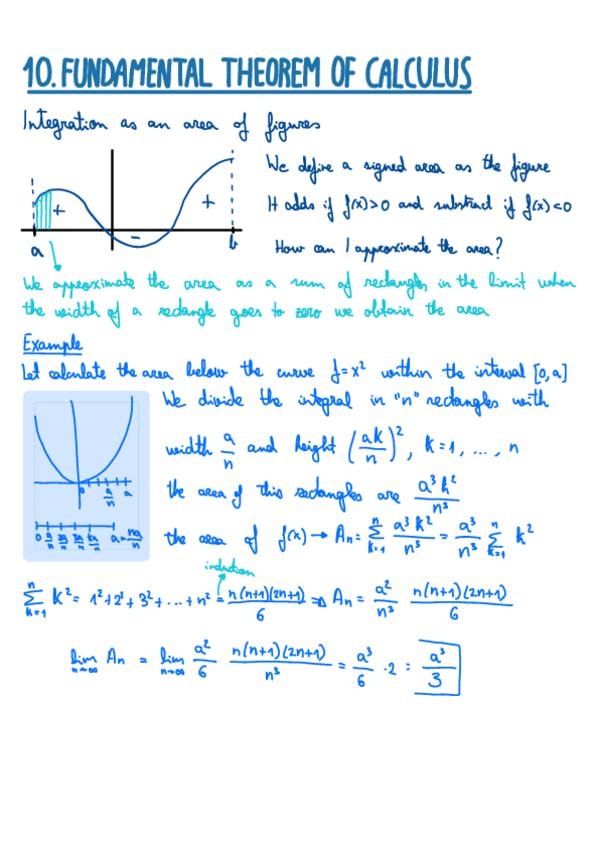 10. FUNDAMENTAL THEOREM OF CALCULUS
Integration as an area of figures
+ - +
a b
We define a signed area as the figure
It adds if f(x)>0 and substract if f(x)<0
How can I approximate the area?
We approximate the area as a sum of rectangles, in the limit when
the width of a rectangle goes to zero we obtain the area
Example
Let calculate the area below the curve f=x² within the interval [0,a]
We divide the integral in "n" rectangles with
width a/n and height (ak/n)², k=1, ..., n
the area of this rectangles are a³k²/n³
0 a/n a
0 a/n 2a/n 3a/n 4a/n a=na/n
the area of f(x) → Aₙ = ∑ₖ₌₁ⁿ a³k²/n³ = a³/n³ ∑ₖ₌₁ⁿ k²
induction
∑ₖ₌₁ⁿ k² = 1²+2²+3²+...+n² = n(n+1)(2n+1)/6 ⇒ Aₙ = a²/n³ n(n+1)(2n+1)/6
lim n→∞ Aₙ = lim n→∞ a²/6 n(n+1)(2n+1)/n³ = a³/6 · 2 = a³/3